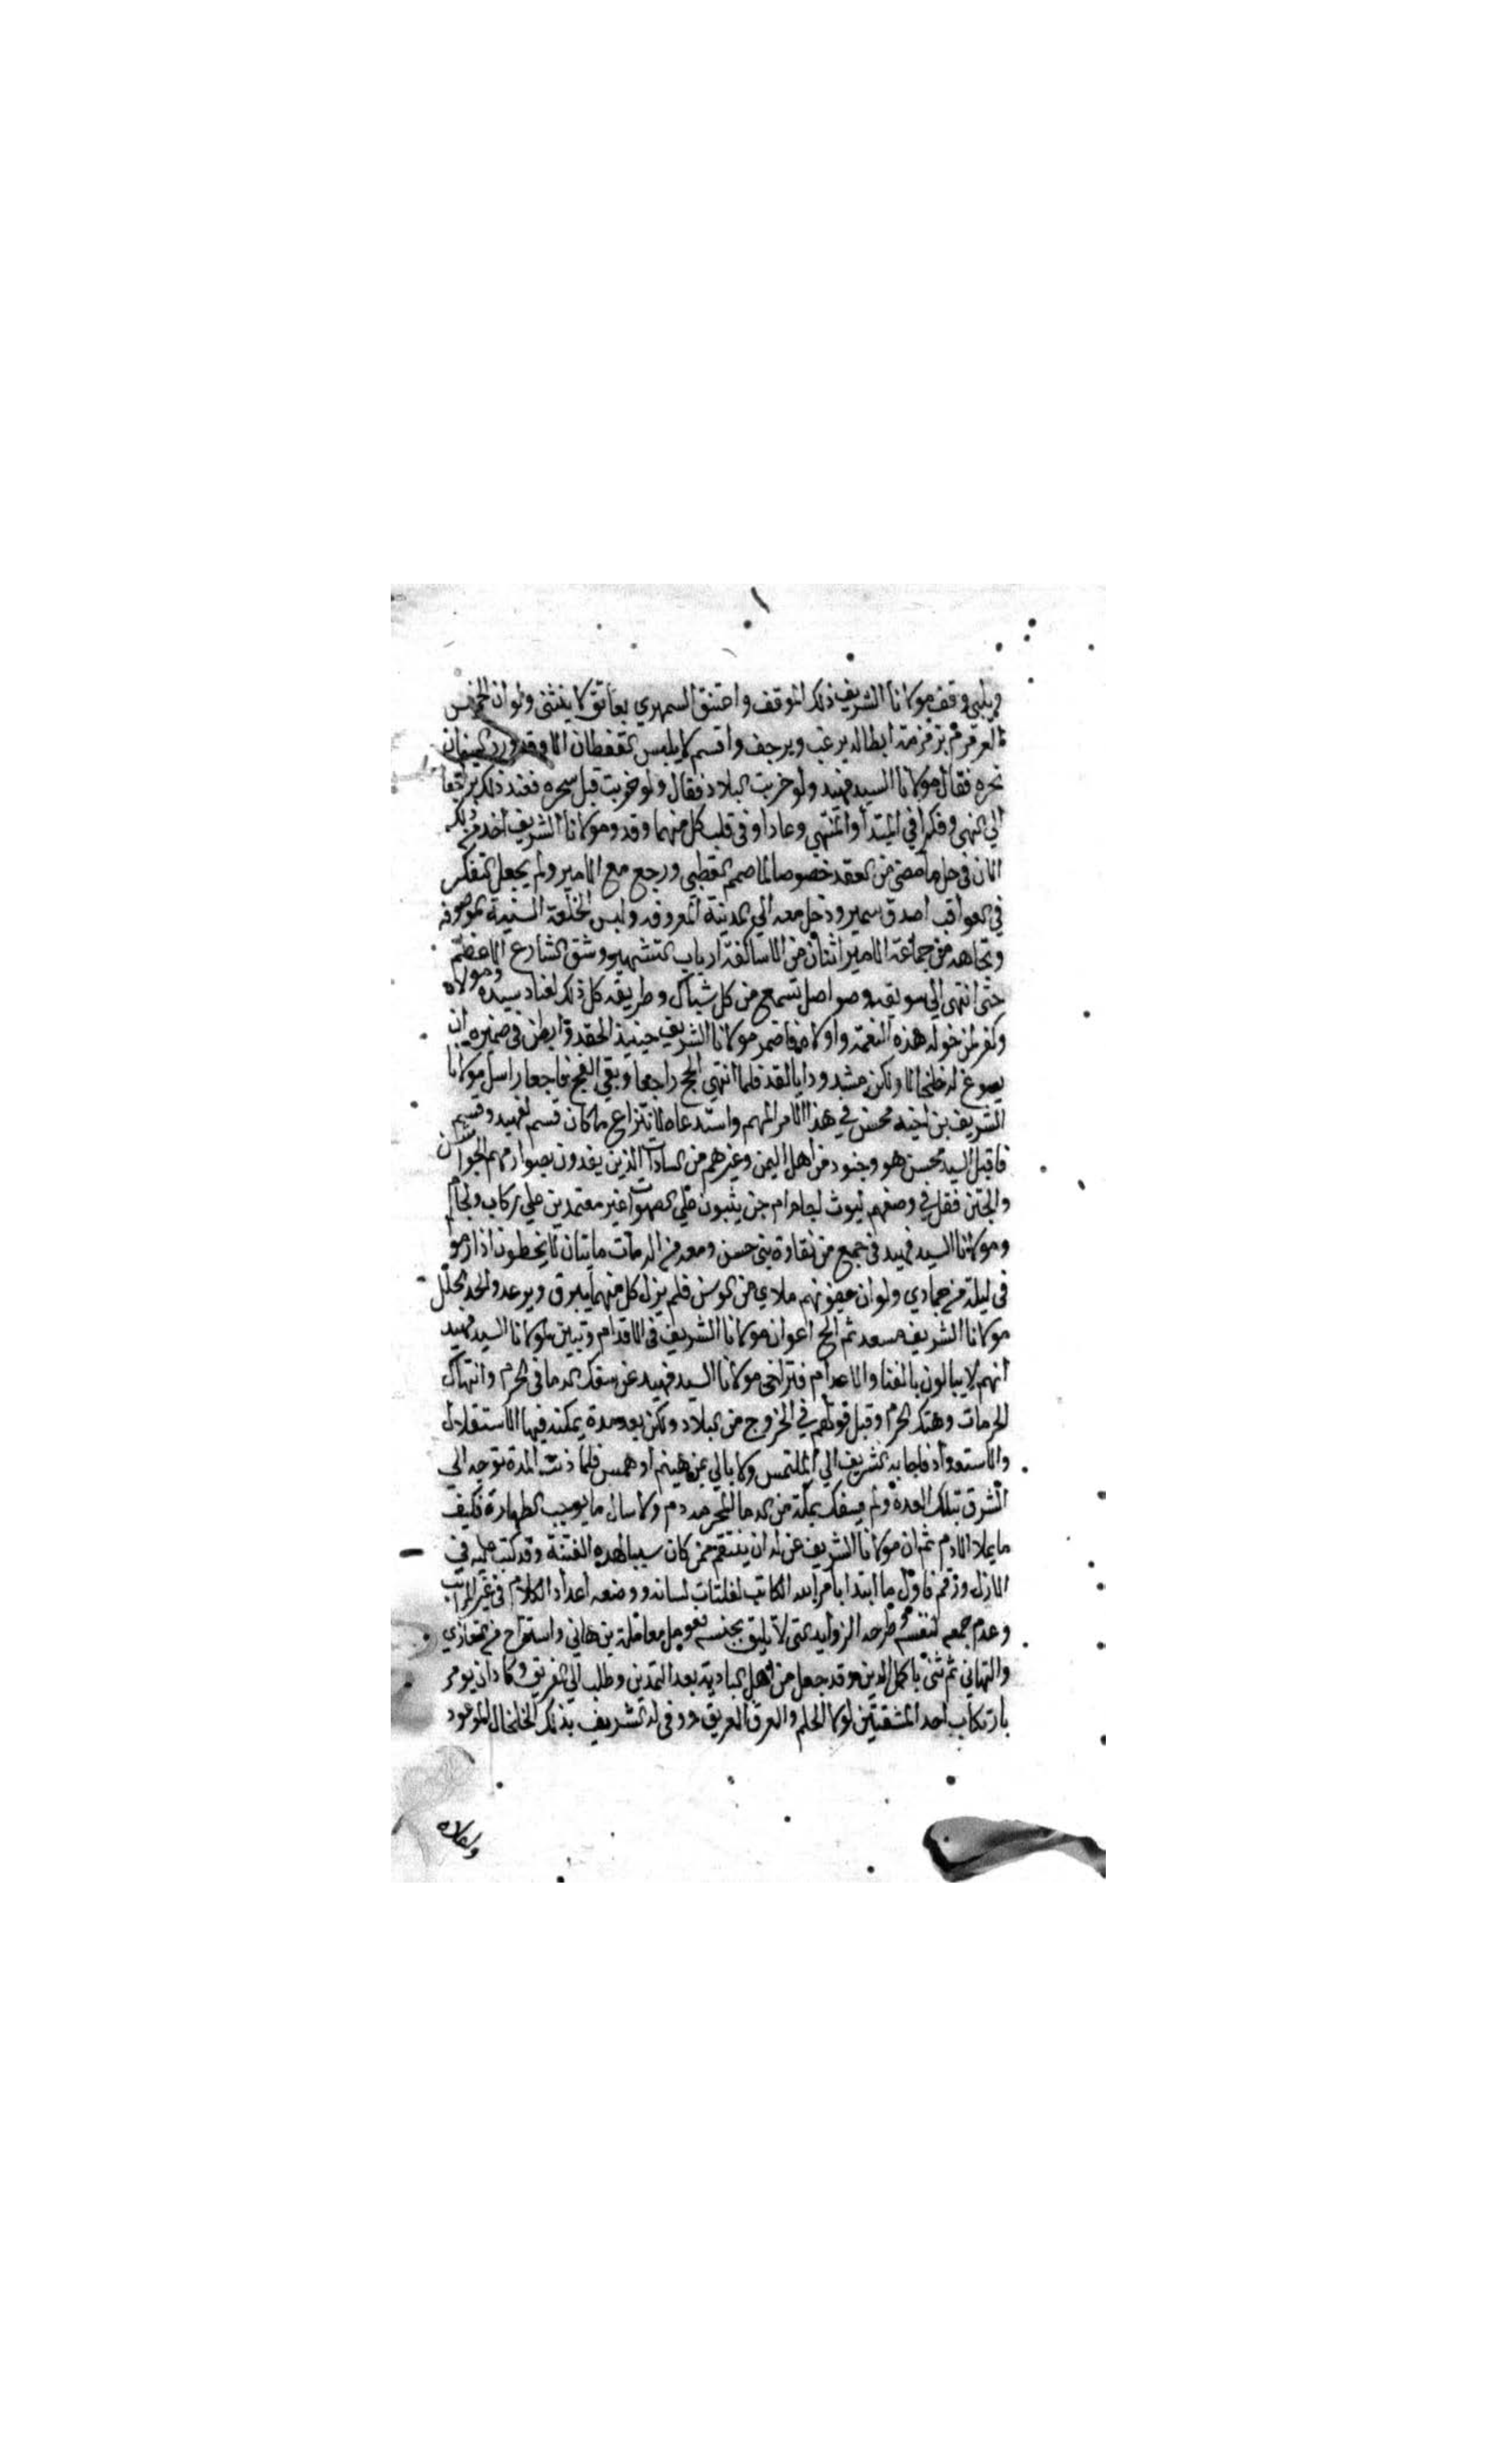 وقف مولانا الشريف ذلك الموقف واعتنق السمهري بعاتق لا ينثني ولو ان الخميس
العرمرم بزمزمة ابطاله يرغب ويرجف واقسم لا يلبس القفطان الا وقد ورد السنان
نحره فقال مولانا السيد فهيد ولو خربت البلاد فقال ولو خربت قبل سحره فعند ذلك تراجعا
الي النهى وفكرا في المبتدأ والمنتهي وعادا وفي قلب كل منهما وقد ومولانا الشريف اخذ من ذلك
الان في حل ما مضى من العقد خصوصا لما صمم القطبي ورجع مع الامير ولم يجعل التفكر
في العواقب اصدق سمير ودخل معه الي المدينة المعروفه ولبس الخلعة السنية الموصوفه
وتجاهه من جماعة الامير اثنان من الاساكفة ارباب التشهير وشق الشارع الاعظم
حتى انتهى الي سويقه وصواصل تسمع من كل شباك وطريقه كل ذلك لعناد سيده ومولاه
وكفر لمن خوله هذه النعمة واولاه فاضمر مولانا الشريف حينيذ الحقد وابطن في ضميره ان
يصوغ له خلخالا ولكن مشدودا بالقد فلما انتهى الحج راجعا وبقي الفج فاجعا راسل مولانا
الشريف بن اخيه محسن في هذا الامر المهم واستدعاه لانتزاع ما كان قسم لفهيد وقسيم
فاقبل السيد محسن هو وجنود من اهل اليمن وغيرهم من السادات الذين يفدون بصوارمهم الجواشن
والجنن فقل في وصفهم ليوث لجاء ام جن يثبون علي الصهوات غير معتمدين علي ركاب ولجام
ومولانا السيد فهيد في جمع من نقاوة بني حسن ومعه من الرماة مايتان لا يخطون اذا رموا
في ليلة من جمادي ولو ان جفونهم ملاي من الوسن فلم يزل كل منهما يبرق ويرعد والجد
مولانا الشريف مسعد ثم الح اعوان مولانا الشريف في الاقدام وتبين لمولانا السيد فهيد
انهم لا يبالون بالفنا والاعدام فتراخى مولانا السيد فهيد عن سفك الدما في الحرم وانتهاك
الحرمات وهتك الحرم وقبل قولهم في الخروج من البلاد ولكن بعد مدة يمكنه فيها الاستقلال
والاستعداد فاجابه الشريف الي الملتمس ولا بالي بمن هينم او همس فلما دنت المدة توجه الي
الشرق بتلك العدة ولم يسفك بمكة من الدما المحرمه دم ولا سال ما يوجب الطهارة فكيف
ما يملا الادم ثم ان مولانا الشريف عن له ان ينتقم ممن كان سببا لهذه الفتنة وقد كتب عليه في
الازل ورقم فاول ما ابتدا بامر الله الكاتب لفلتات لسانه ووضعه اعداد الكلام في غير المراتب
وعدم جمعه لنفسه وطرحه الزوايد حتى لا يليق بجنسه فعومل معاملة بن هاني واستراح من التعازي
والتهاني ثم ثنى باكمل الدين وقد جعل من اهل البادية بعد التمدين وطلب الي الفريق وكاد ان يومر
بارتكاب احد المشقتين لولا الحلم والعرق العريق ووفى له الشريف بذلك الخلخال الموعود
ولعلاه